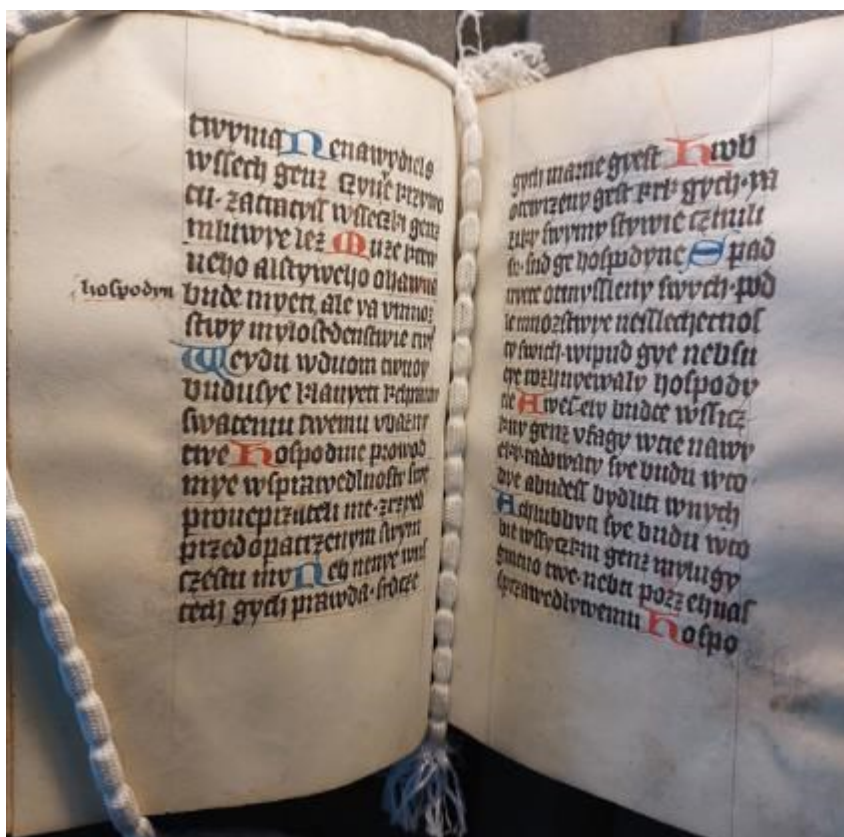 twyma Nenawydiels
wssech genz czynie krzywo
tu · zatratyss wsseczky genz
mluwye lez Muze krwa
weho alstyweho ohawna
hospodyn
bude myeti, ale ya vmnoz
stwy mylosrdenstwie twe
Weydu wduom twuoy
budusye klanyeti kchramu
swatemu twemu vbazny
twe Hospodine prowod
mye wsprawedlnosti twe
pronieprzateli me · zrzyed
przed opatrzenym twym
czestu mu Neb nenye wus
tech gych prawda · srdcze
gych marne gyest Hrob
otewrzeny gest krk gych · ya
zyky swymy stywie czinili
su · sud ge hospodyne Spad
nyete otmyssleny swych · pod
le mnozstwye nesslechetnos
ty swich · wipud gye nebsu
tye rozhnyewaly hospody
ne Awesely budte wssicz
kny genz vfagy wtie nawy
eky radowaty sye budu wto
bye abudess bydliti wnych
Achlubbyti sye budu wto
bie wssyczkni genz mylugy
gmeno twe · nebo pozzehnas
sprawedlywemu Hospo